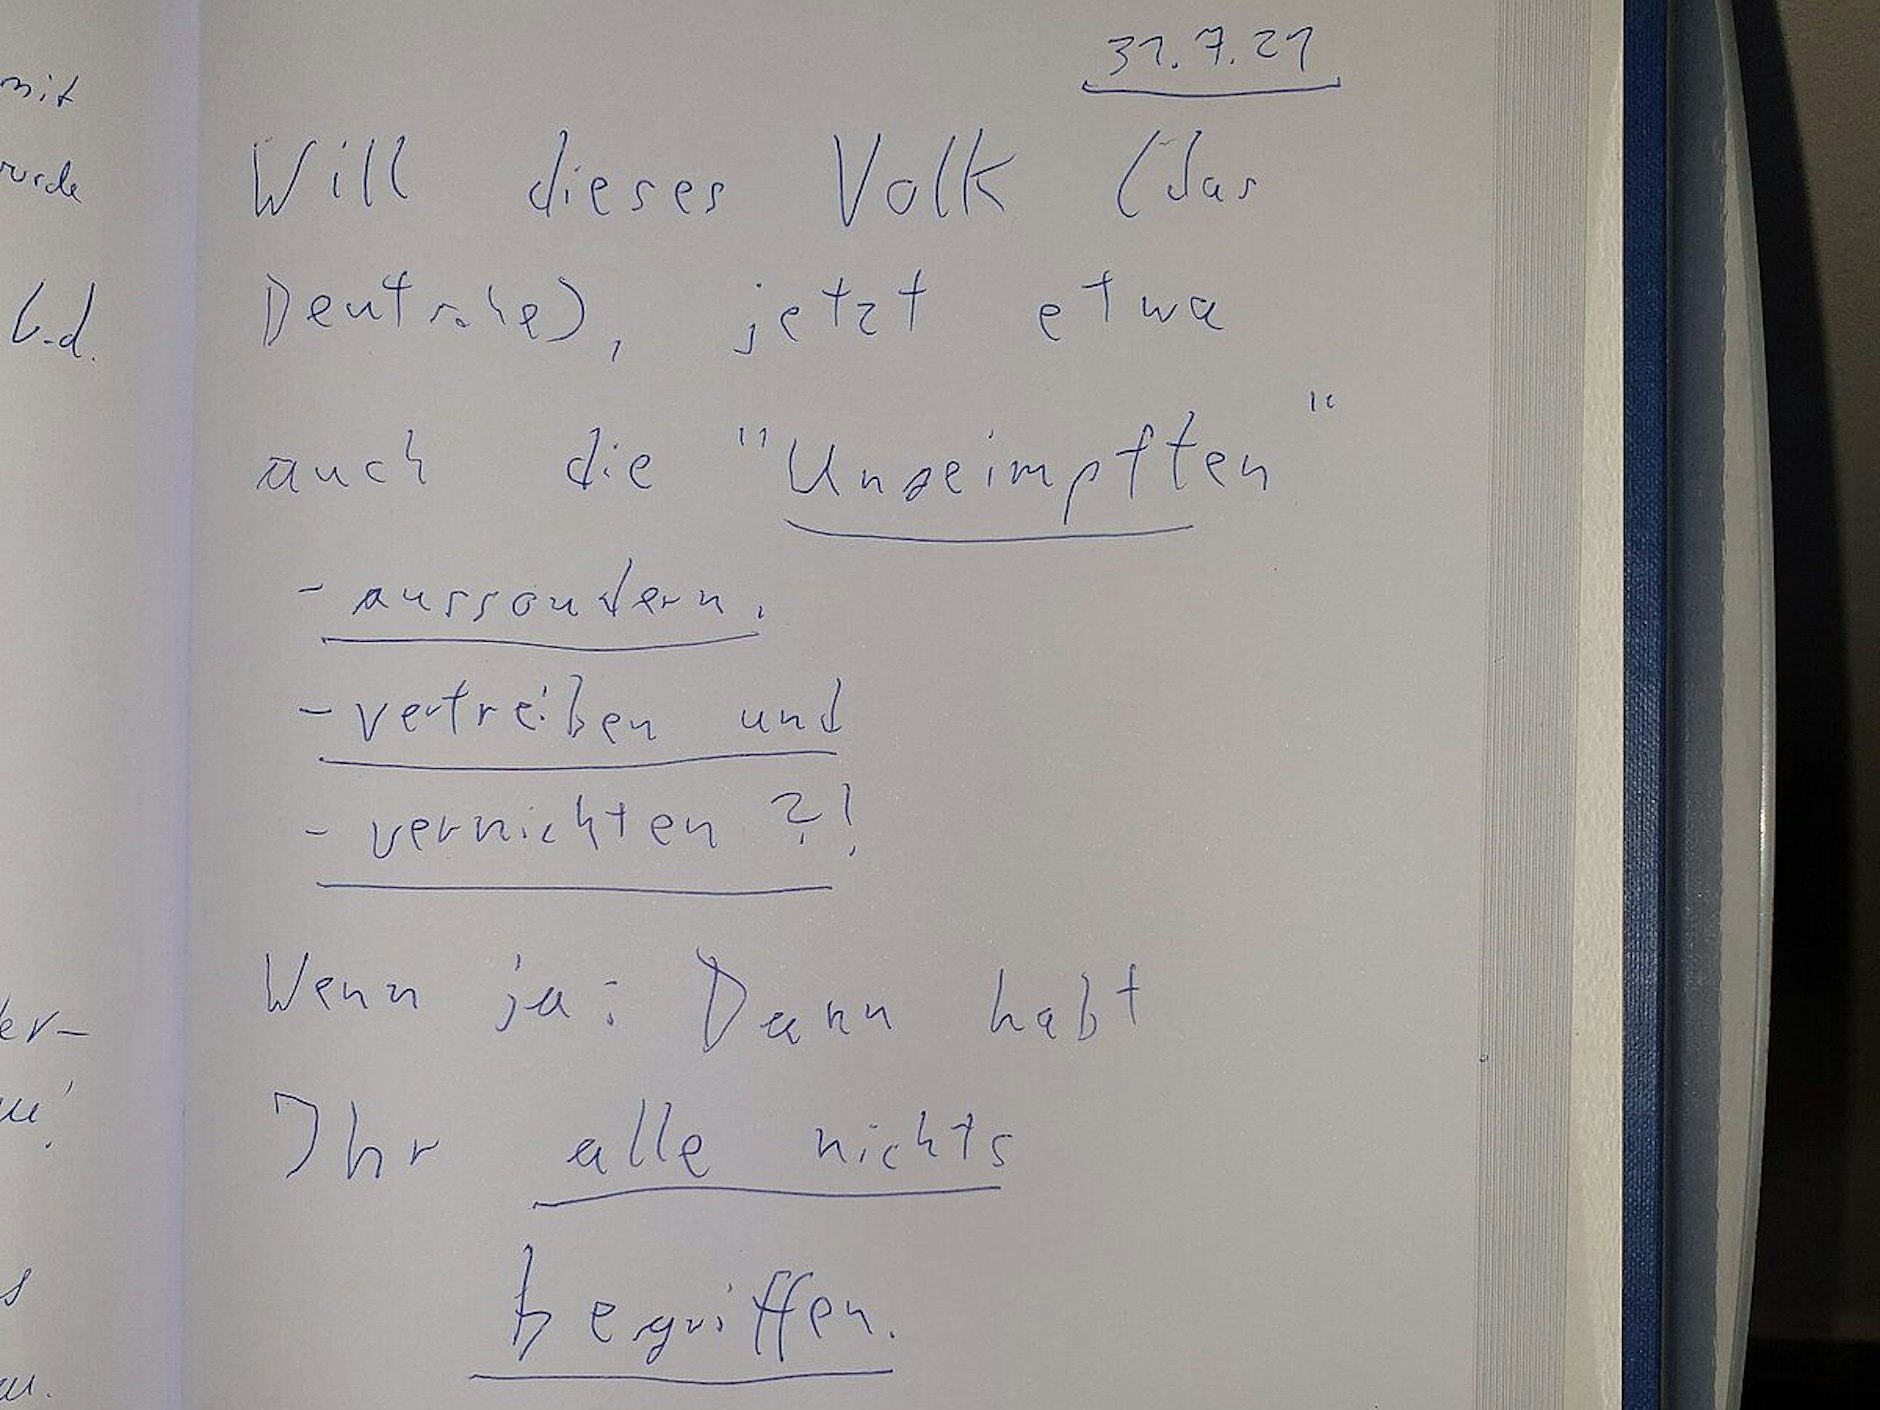 mit
wurde
b.d.
31.7.21
Will dieses Volk (das
Deutsche), jetzt etwa
auch die "Ungeimpften"
- aussondern,
- vertreiben und
- vernichten ?!
Wenn ja: Dann habt
Ihr alle nichts
begriffen.